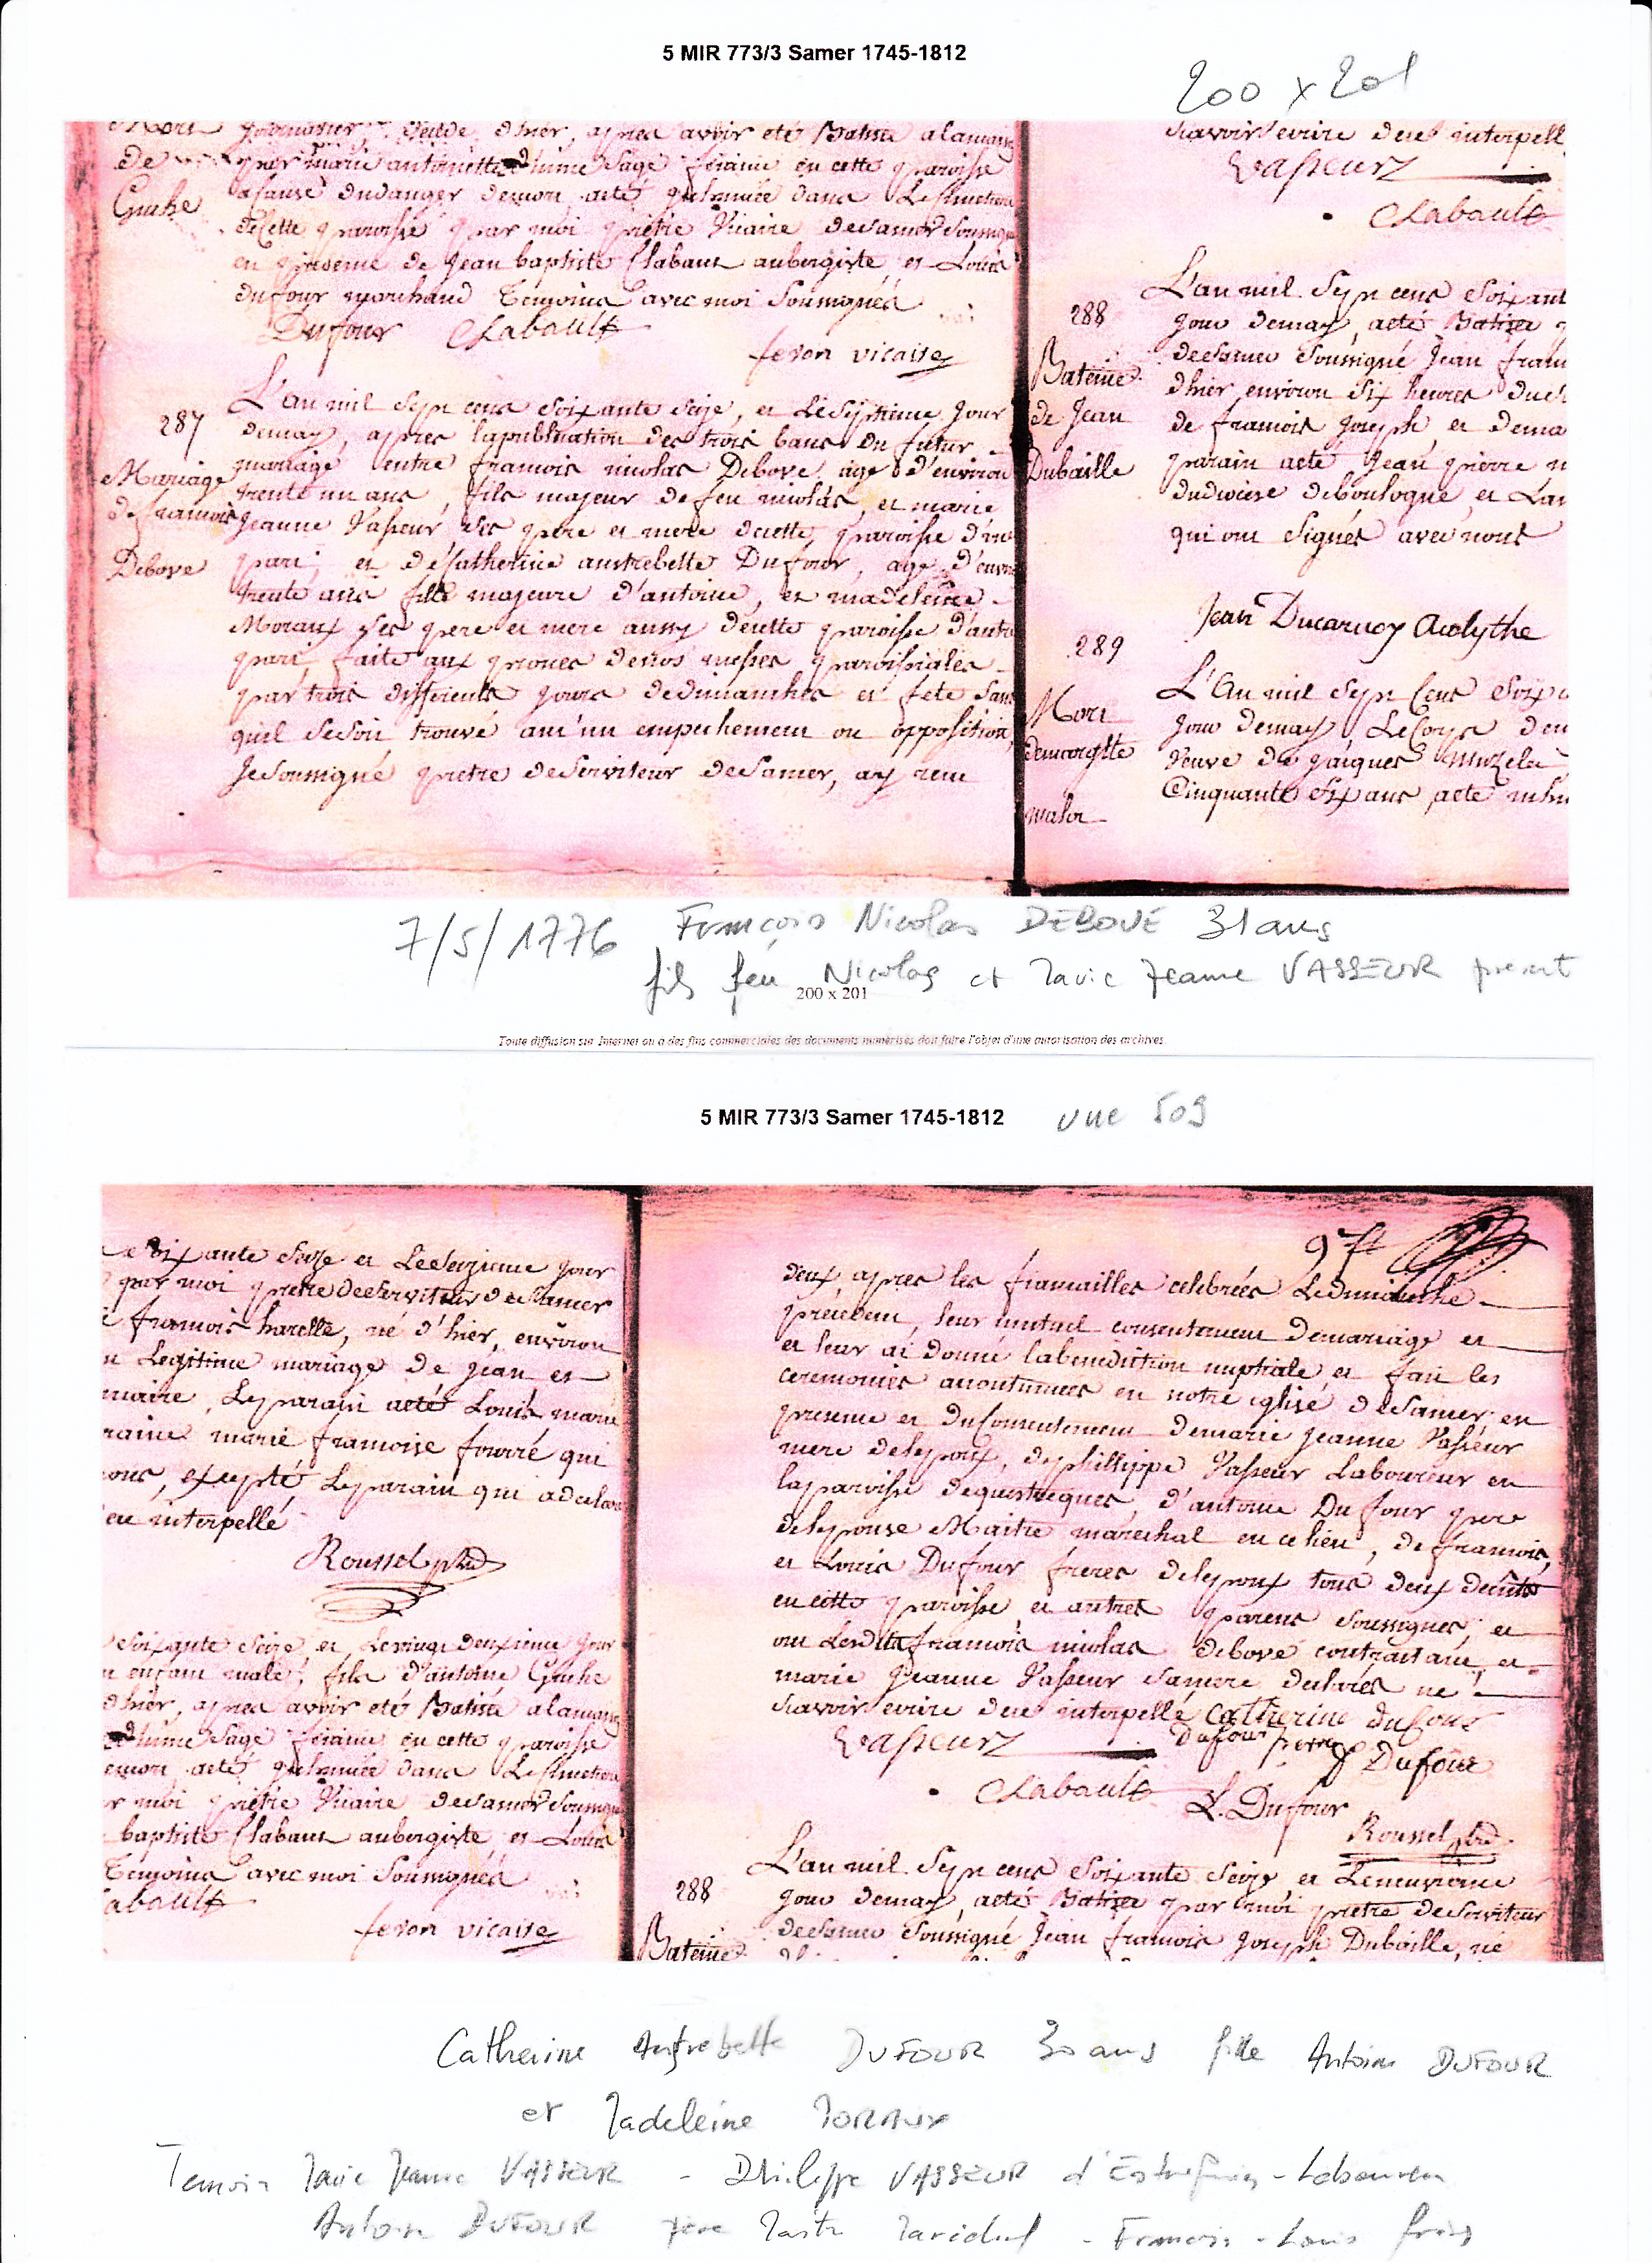 5 MIR 773/3 Samer 1745-1812
200 x 201
Mort journalier, decedé d'hier, apres avoir eté Batisé a la maison
de par marie antoinette d'hume sage femme en cette paroisse
Gruhe a cause du danger de mort a eté inhumée dans Le Cimetiere
de Cette paroisse par moi prêtre Vicaire de Samer Soussigné
en presence de Jean baptiste Clabaut aubergiste et Louis
dufour marchand Temoins avec moi Soussignés
Dufour Clabault
feron vicaire
287
Mariage
de francois
Debove
L'an mil sept cens soixante seize, et Le septieme Jour
de may, apres la publication des trois bans du futur
mariage entre francois nicolas Debove, age d'environ
trente un ans, fils majeur de feu nicolas, et marie
Jeanne Vasseur ses pere et mere de cette paroisse d'une
part; et de Catherine austrebette Dufour, age d'environ
trente ans fille majeure d'antoine, et madeleine
Moraux ses pere et mere aussy de cette paroisse d'autre
part, faite aux prones de nos messes paroissiales
par trois differents jours de dimanches et fête sans
quil se soit trouvé aucun empechement ou opposition,
Je soussigné pretre deServiteur de Samer, ay recu
scavoir ecrire dece interpell
Vasseur
Clabault
288
Bateme
de Jean
Dubaille
L'an mil sept cens soixant
jour de may, a eté Batisé
de Samer Soussigné Jean fran
d'hier environ six heures du
de francois Joseph, et de ma
parain a eté Jean pierre
du diocese de boulogne, et La
qui ont signés avec nous
Jean Ducarnoy Acolythe
289
Mort
de margtte
malor
L'An mil sept Cens soix
jour de may Le Corps de
veuve de jacques
Cinquante six ans, a eté inhu
7/5/1776 François Nicolas DEBOVE 31 ans
fils feu Nicolas et Marie Jeanne VASSEUR present
200 x 201
Toute diffusion sur Internet ou a des fins commerciales des documents numérisés doit faire l'objet d'une autorisation des archives.
5 MIR 773/3 Samer 1745-1812 vue 509
soixante seize et Le seizieme jour
par moi pretre deServiteur de Samer
francois harelle, né d'hier, environ
Legitime mariage de jean et
maire, Le parain a eté Louis marie
raine marie francoise fourré qui
ous, excepté Le parain qui a declaré
interpellé
Roussel ptre
soixante seize, et Le vingt deuxieme jour
enfant male, fils d'antoine Gruhe
d'hier, apres avoir eté Batisé a la maison
d'hume sage femme en cette paroisse
mort a eté inhumée dans Le Cimetiere
r moi prêtre Vicaire de Samer Soussigné
baptiste Clabaut aubergiste et Louis
Temoins avec moi Soussignés
abault
feron vicaire
97
deux apres les fiancailles celebrées Le dimanche
precedent, leur mutuel consentement de mariage et
et leur ai donné la benediction nuptiale, et fait les
ceremonies accoutumées en notre eglise de Samer en
presence et du Consentement de marie jeanne Vasseur
mere de l'epoux, de phillippe Vasseur Laboureur en
la paroisse de questrecques, d'antoine Dufour pere
de l'epouse Maitre marechal en ce lieu, de francois,
et Louis Dufour freres de l'epoux tous deux
en cette paroisse, et autres parens soussignes, et
ont Lesdits francois nicolas debove contractant, et
marie Jeanne Vasseur sa mere declarés ne
scavoir ecrire dece interpellé catherine dufour
Vasseur Dufour pere f Dufour
Clabault L. Dufour
Roussel ptre
288
Bateme
L'an mil sept cens soixante seize et Le neuvieme
jour de may, a eté Batisé par moi pretre deServiteur
de Samer Soussigné Jean francois Joseph Dubaille, né
Catherine Austrebette DUFOUR 30 ans fille Antoine DUFOUR
et Madeleine MORAUX
Temoin Marie Jeanne VASSEUR - Philippe VASSEUR d' - Laboureur
Antoine DUFOUR père Maitre Marechal - Francois - Louis frères